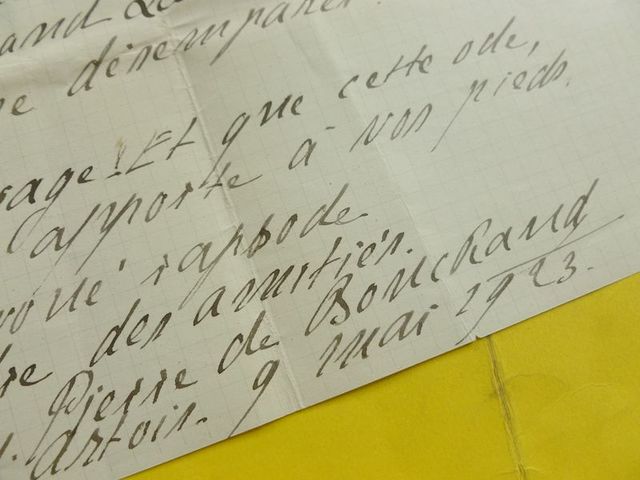 and
désempare
rage! Et que cette ode,
l'apporte à vos pieds.
voué rapsode
des amitiés.
Pierre de Bouchaud
Artois. 9 mai 1923.